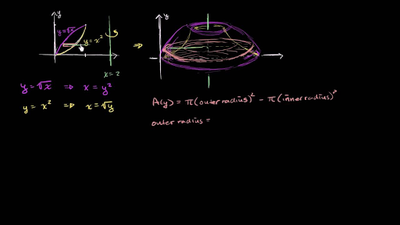 y
y=√x
y=x²
x=2
y
y=√x ⇒ x=y²
y=x² ⇒ x=√y
A(y) = π(outer radius)² − π(inner radius)²
outer radius =